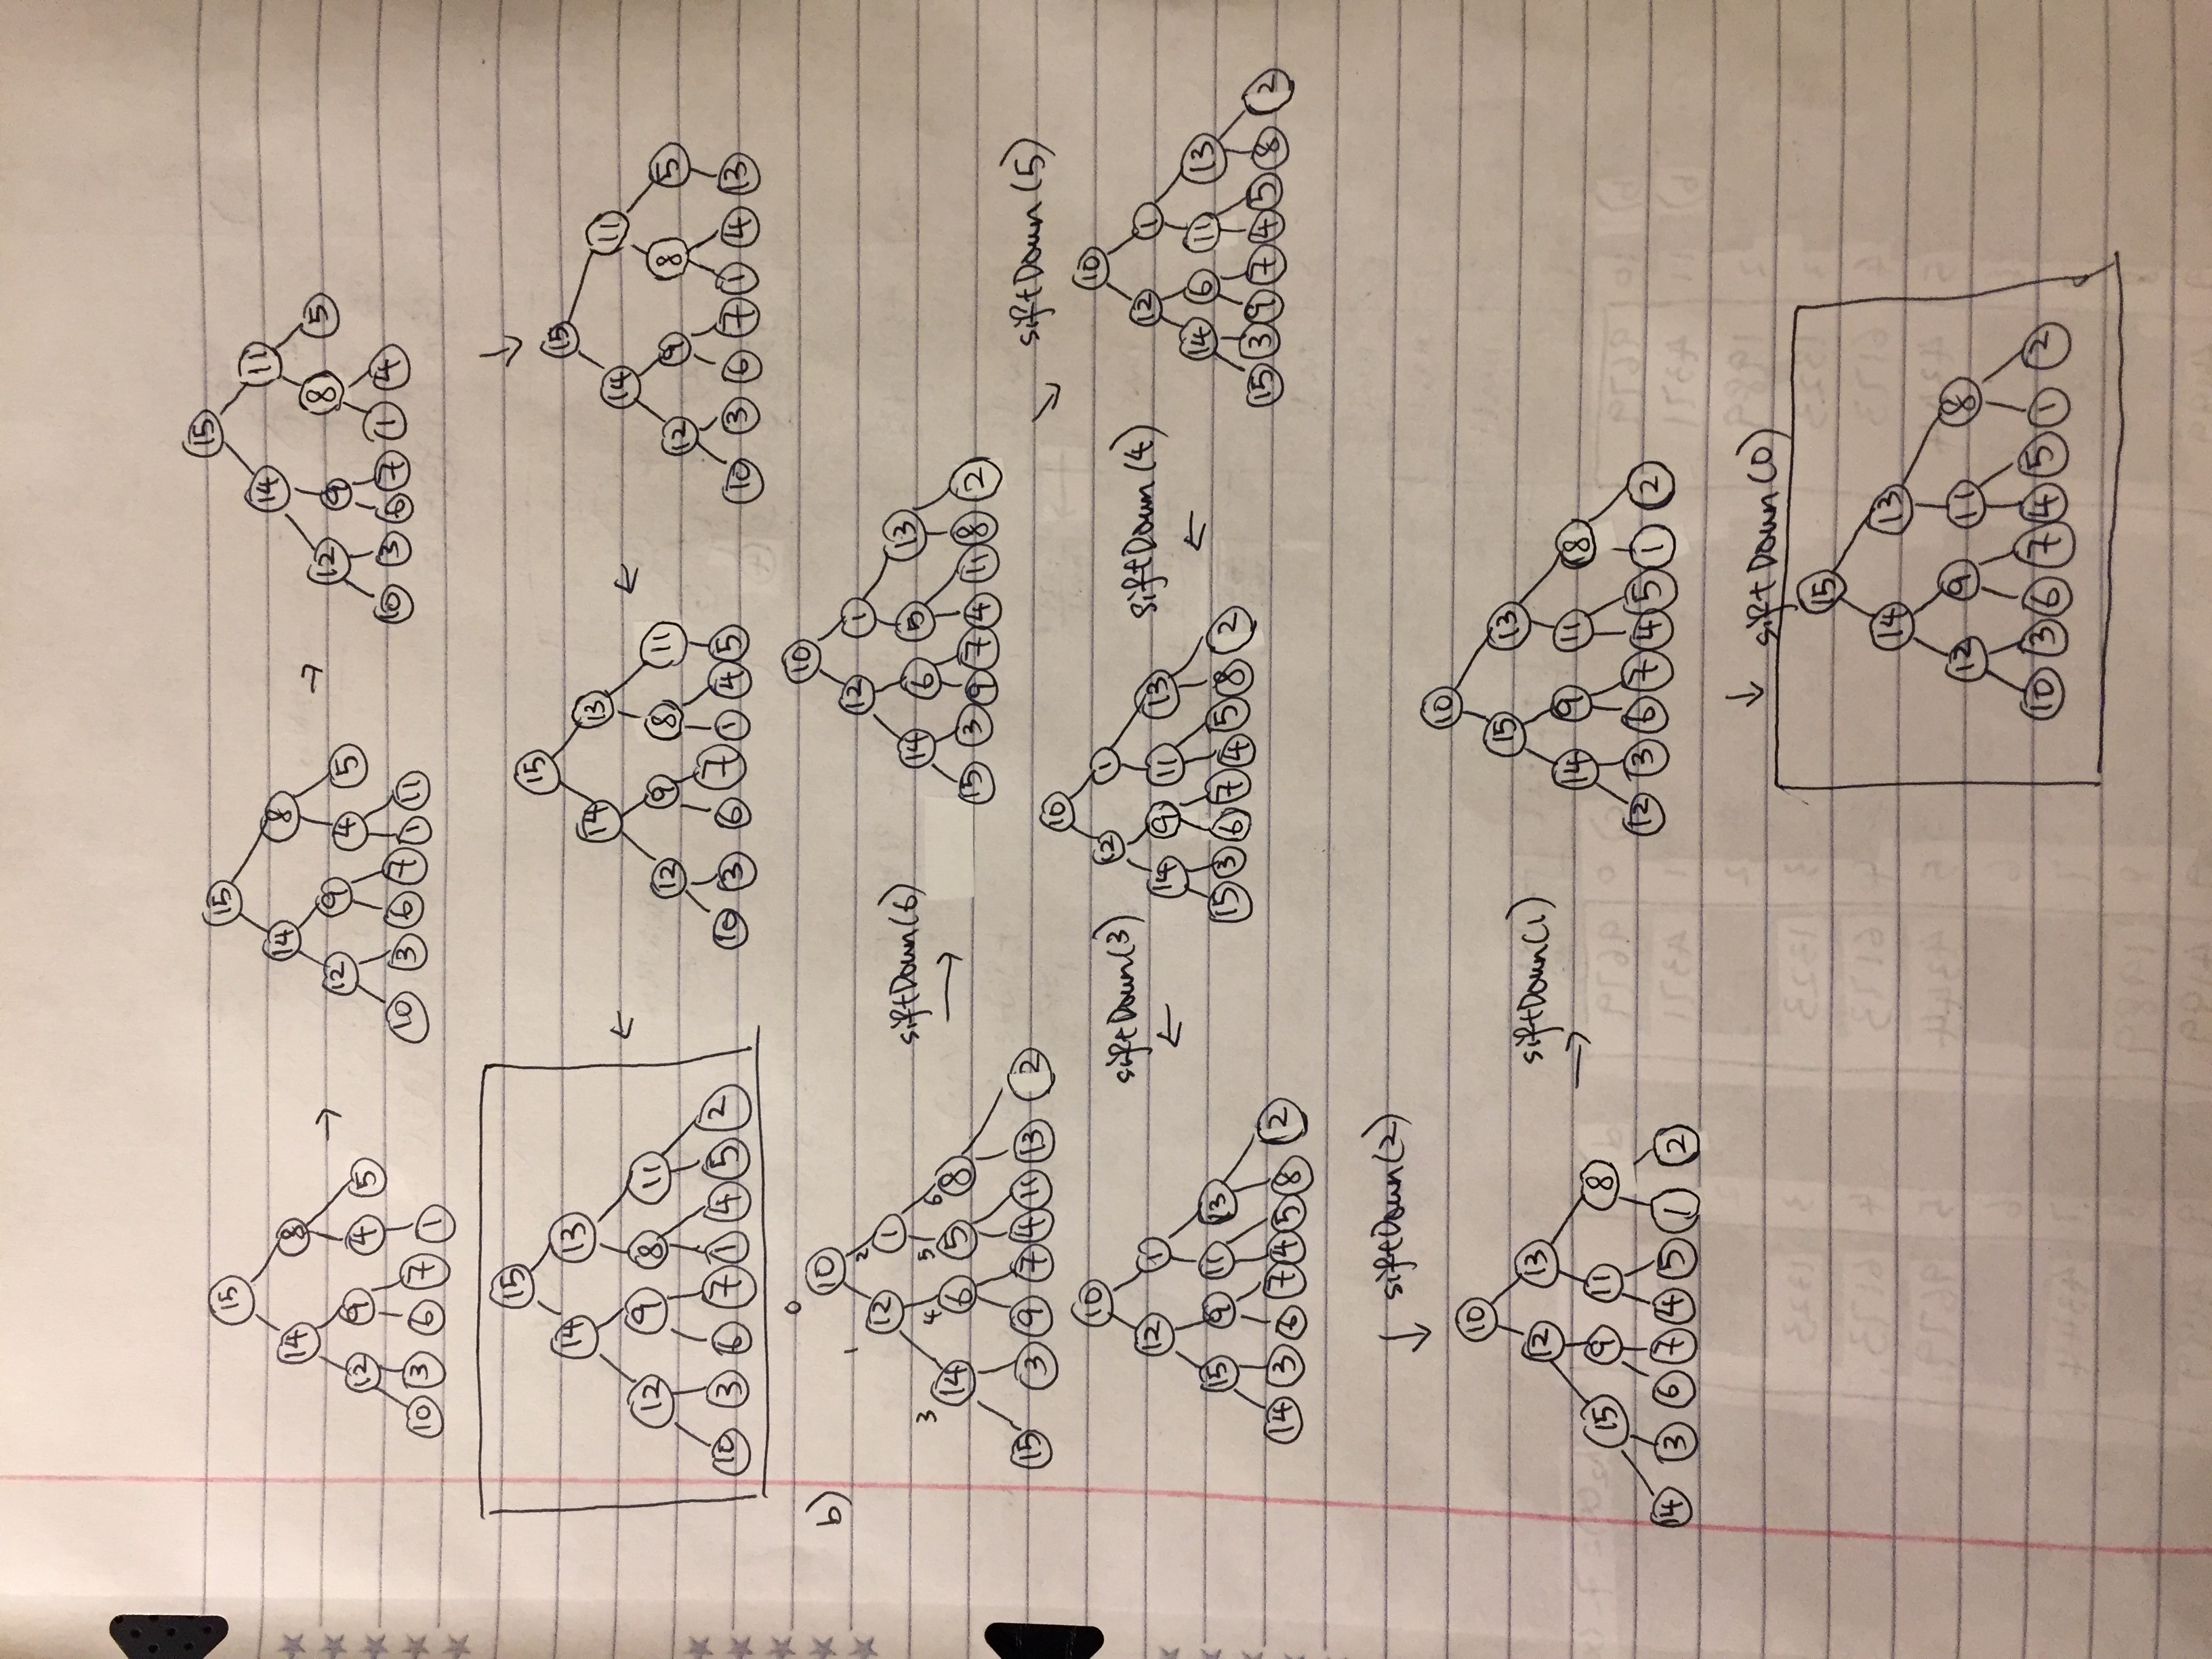 15 15 15
14 8 14 8 14 11
12 9 4 5 12 9 4 5 12 9 8 5
10 3 6 7 1 10 3 6 7 1 11 10 3 6 7 1 4
→ →
↓
15 15 15
14 13 14 13 14 11
12 9 8 11 12 9 8 11 12 9 8 5
10 3 6 7 1 4 5 2 10 3 6 7 1 4 5 10 3 6 7 1 4 13
← ←
b)
0
10
1 2
12 1
3 4 5 6
14 6 5 8
15 3 9 7 4 11 13 2
siftDown(6)
→
10
12 1
14 6 5 13
15 3 9 7 4 11 8 2
↘ siftDown(5)
10
12 1
14 6 11 13
15 3 9 7 4 5 8 2
siftDown(4)
←
10
12 1
14 9 11 13
15 3 6 7 4 5 8 2
siftDown(3)
←
10
12 1
15 9 11 13
14 3 6 7 4 5 8 2
↓ siftDown(2)
10
12 13
15 9 11 8
14 3 6 7 4 5 1 2
siftDown(1)
→
10
15 13
14 9 11 8
12 3 6 7 4 5 1 2
↓ siftDown(0)
15
14 13
12 9 11 8
10 3 6 7 4 5 1 2